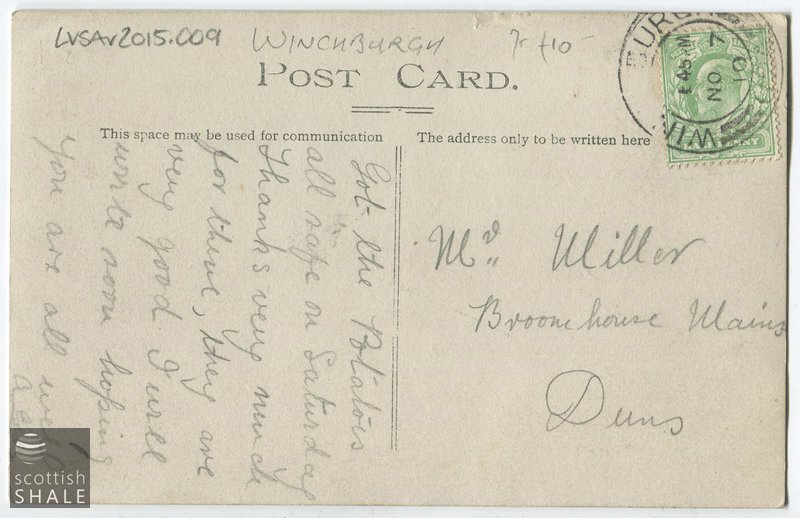 LVSAV2015.009 WINCHBURGH 7-f10-
POST CARD.
This space may be used for communication
The address only to be written here
BURGH
1.45 PM
NO 7
10
WIN
Got the Potatois
all safe on Saturday
thanks very much
for theme, they are
very good I will
write soon hoping
you are all well
Mrs Miller
Broomehouse Mains
Duns
scottish
SHALE